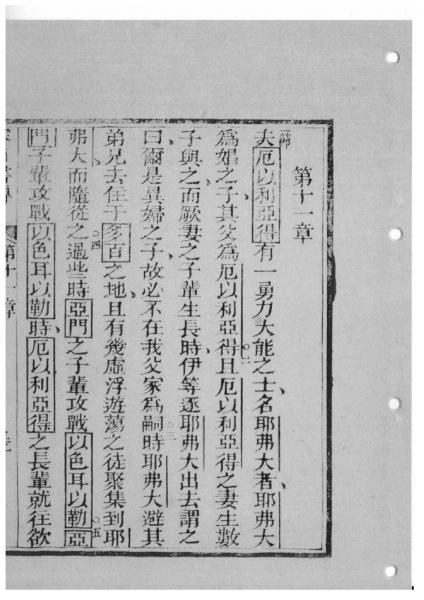 第十一章
一節 夫厄以利亞得有一勇力大能之士名耶弗大者耶弗大
為娼之子其父為厄以利亞得 ○二 且厄以利亞得之妻生數
子與之而厥妻之子輩生長時伊等逐耶弗大出去謂之
曰爾是異婦之子故必不在我父家為嗣 ○三 時耶弗大避其
弟兄去住于多百之地且有幾虛浮遊蕩之徒聚集到耶
弗大而隨從之 ○四 過些時亞門之子輩攻戰以色耳以勒 ○五 亞
門子輩攻戰以色耳以勒時厄以利亞得之長輩就往欲
第十一章